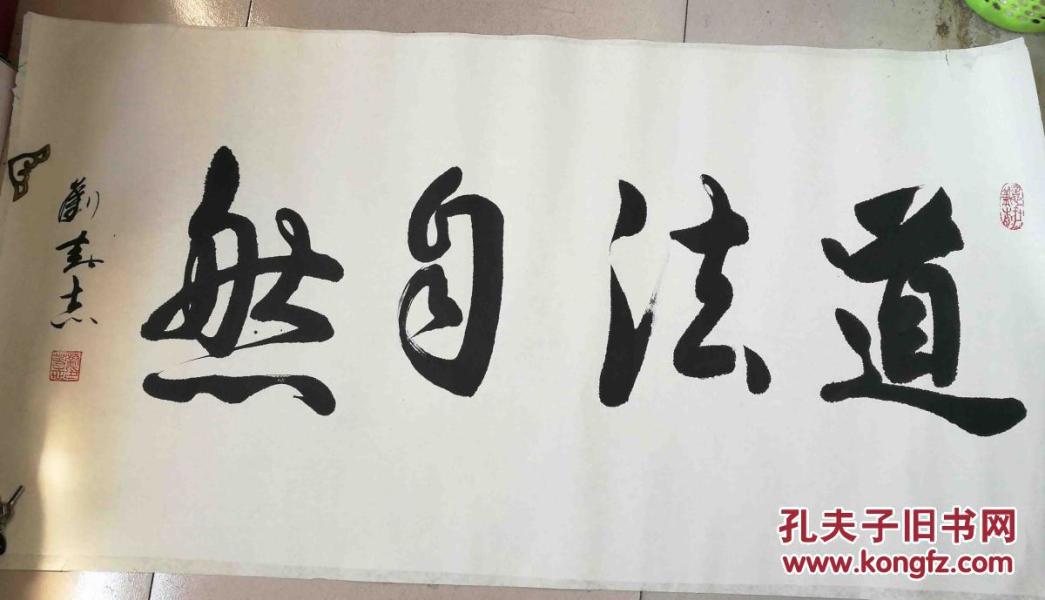 道法自然
孔夫子旧书网
www.kongfz.com